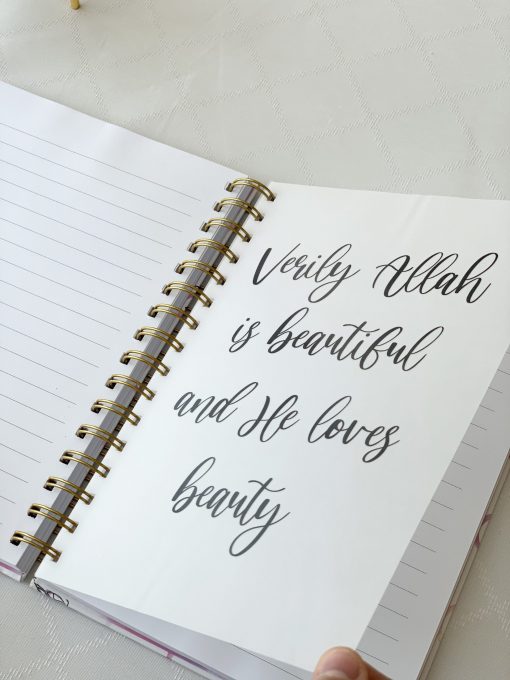 Verily Allah
is beautiful
and He loves
beauty